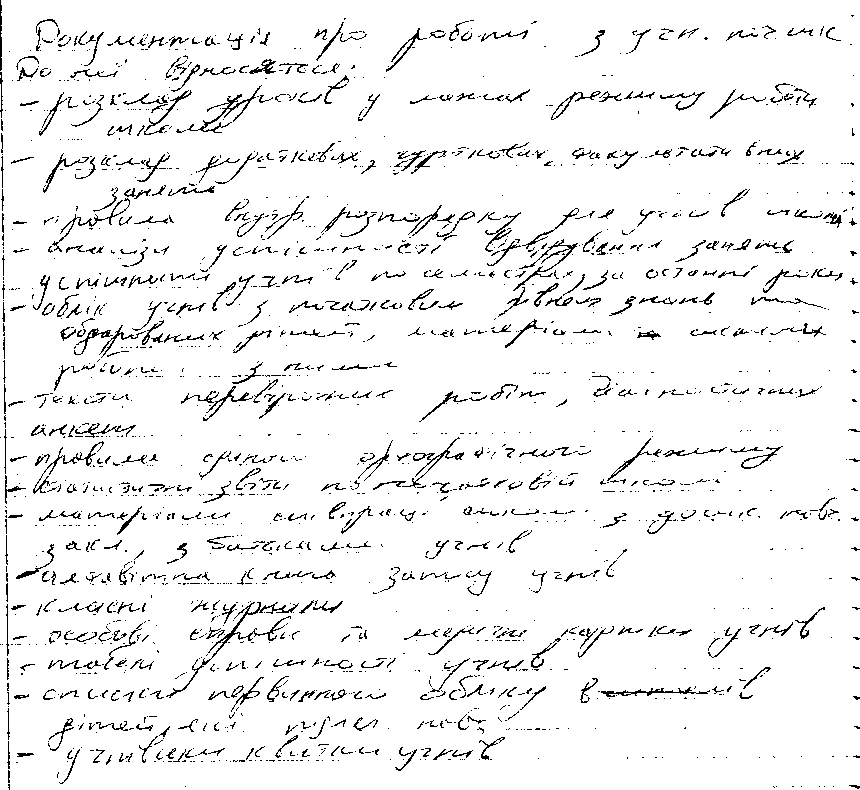 Документація про роботі з учн. почшк
До неї відносяться:
- розклад уроків у межах режиму роботи
школи
- розклад додаткових, гурткових, факультативних
занять
- правила внутр розпорядку для учнів школи
- аналізи успішності відвідування занять
- успішності учнів по семестрах за останні роки
- облік учнів з початковим рівнем знань та
обдарованих дітей, матеріали
роботи з ними
- тексти перевірочних робіт, діагностичних
анкет
- правила єдиного орфографічного режиму
- статистичні звіти по початковій школі
- матеріали співпраці школи з дошк. навч.
закл., з батьками учнів
- алфавітна книга запису учнів
- класні журнали
- особові справи та медичні картки учнів
- табелі успішності учнів
- списки первинного обліку
дітей, які підляг навч
- учнівські квитки учнів